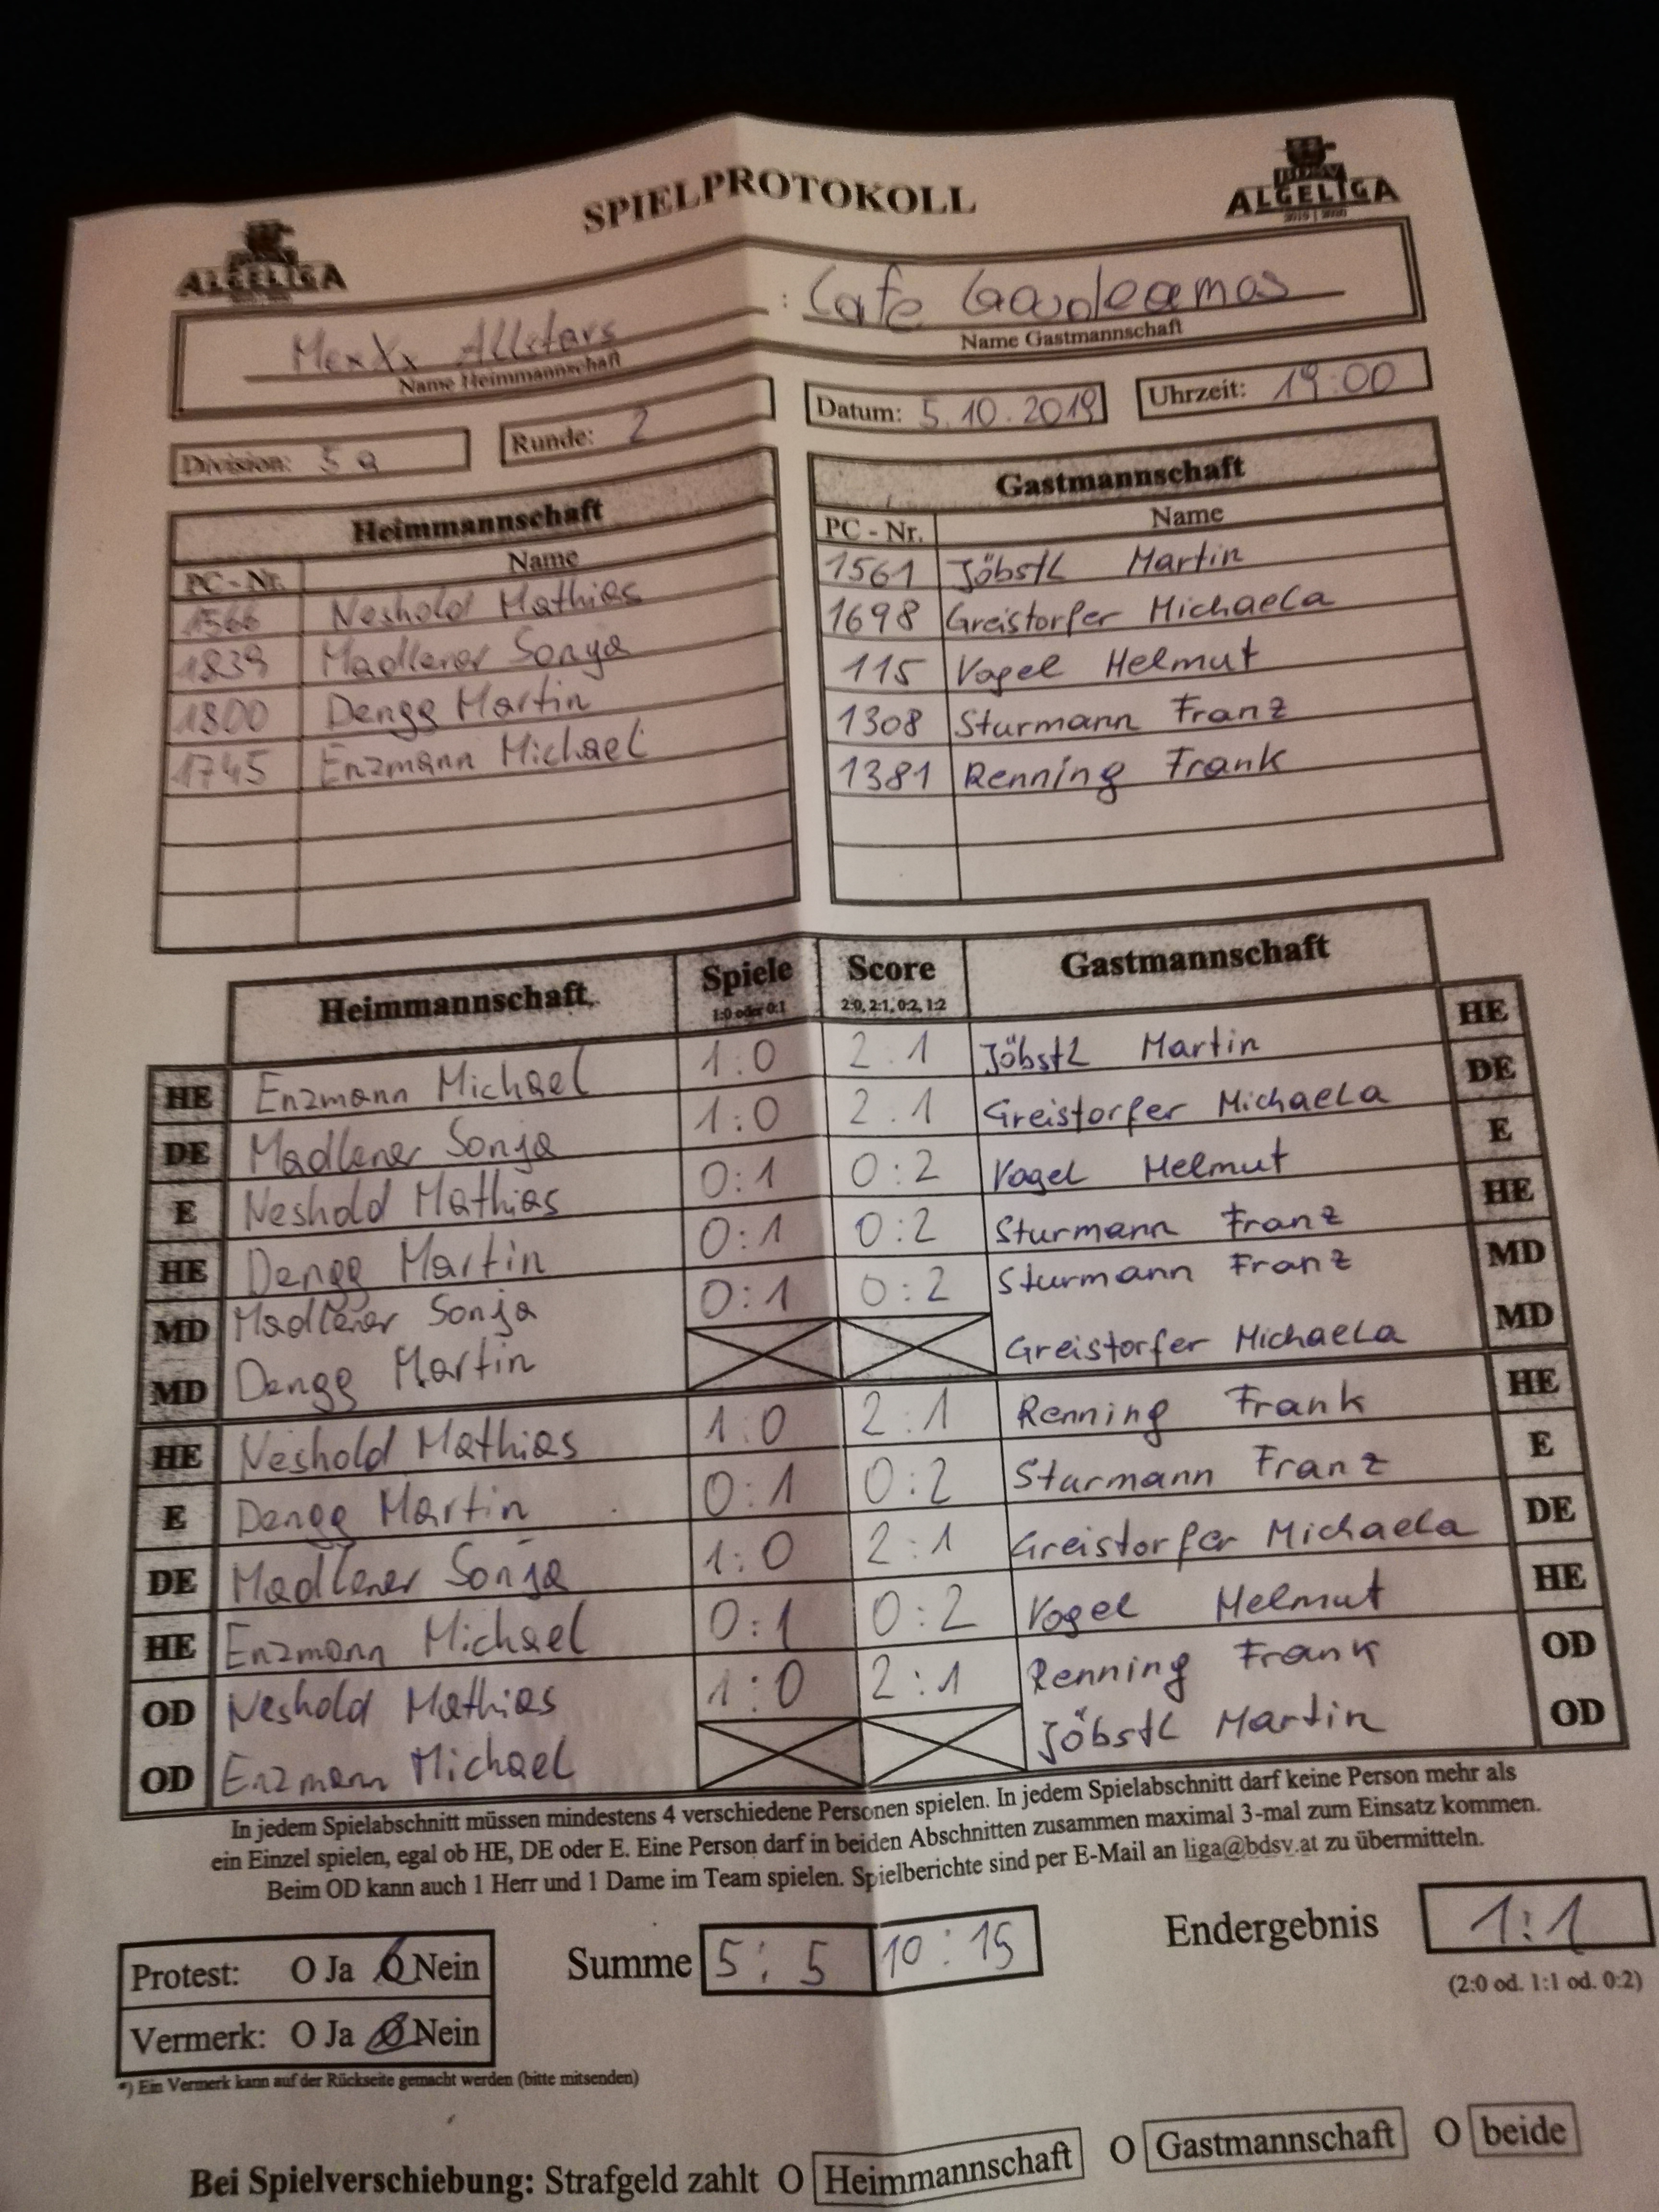 SPIELPROTOKOLL
ALGELIGA
ALGELIGA
MexXx Allstars : Cafe Gaudeamos
Name Heimmannschaft
Name Gastmannschaft
Division: 5a
Runde: 2
Datum: 5.10.2019
Uhrzeit: 19:00
Heimmannschaft
PC - Nr. Name
1566 Neshold Mathias
1839 Madlener Sonja
1800 Dengg Martin
1745 Enzmann Michael
Gastmannschaft
PC - Nr. Name
1561 Jöbstl Martin
1698 Greistorfer Michaela
115 Vogel Helmut
1308 Sturmann Franz
1381 Renning Frank
Heimmannschaft Spiele Score Gastmannschaft
1:0 oder 0:1 2:0, 2:1, 0:2, 1:2
HE Enzmann Michael 1:0 2:1 Jöbstl Martin HE
DE Madlener Sonja 1:0 2:1 Greistorfer Michaela DE
E Neshold Mathias 0:1 0:2 Vogel Helmut E
HE Dengg Martin 0:1 0:2 Sturmann Franz HE
MD Madlener Sonja 0:1 0:2 Sturmann Franz MD
MD Dengg Martin Greistorfer Michaela MD
HE Neshold Mathias 1:0 2:1 Renning Frank HE
E Dengg Martin 0:1 0:2 Sturmann Franz E
DE Madlener Sonja 1:0 2:1 Greistorfer Michaela DE
HE Enzmann Michael 0:1 0:2 Vogel Helmut HE
OD Neshold Mathias 1:0 2:1 Renning Frank OD
OD Enzmann Michael Jöbstl Martin OD
In jedem Spielabschnitt müssen mindestens 4 verschiedene Personen spielen. In jedem Spielabschnitt darf keine Person mehr als
ein Einzel spielen, egal ob HE, DE oder E. Eine Person darf in beiden Abschnitten zusammen maximal 3-mal zum Einsatz kommen.
Beim OD kann auch 1 Herr und 1 Dame im Team spielen. Spielberichte sind per E-Mail an liga@bdsv.at zu übermitteln.
Protest: O Ja O Nein
Vermerk: O Ja O Nein
Summe 5:5 10:15
Endergebnis 1:1
(2:0 od. 1:1 od. 0:2)
*) Ein Vermerk kann auf der Rückseite gemacht werden (bitte mitsenden)
Bei Spielverschiebung: Strafgeld zahlt O Heimmannschaft O Gastmannschaft O beide